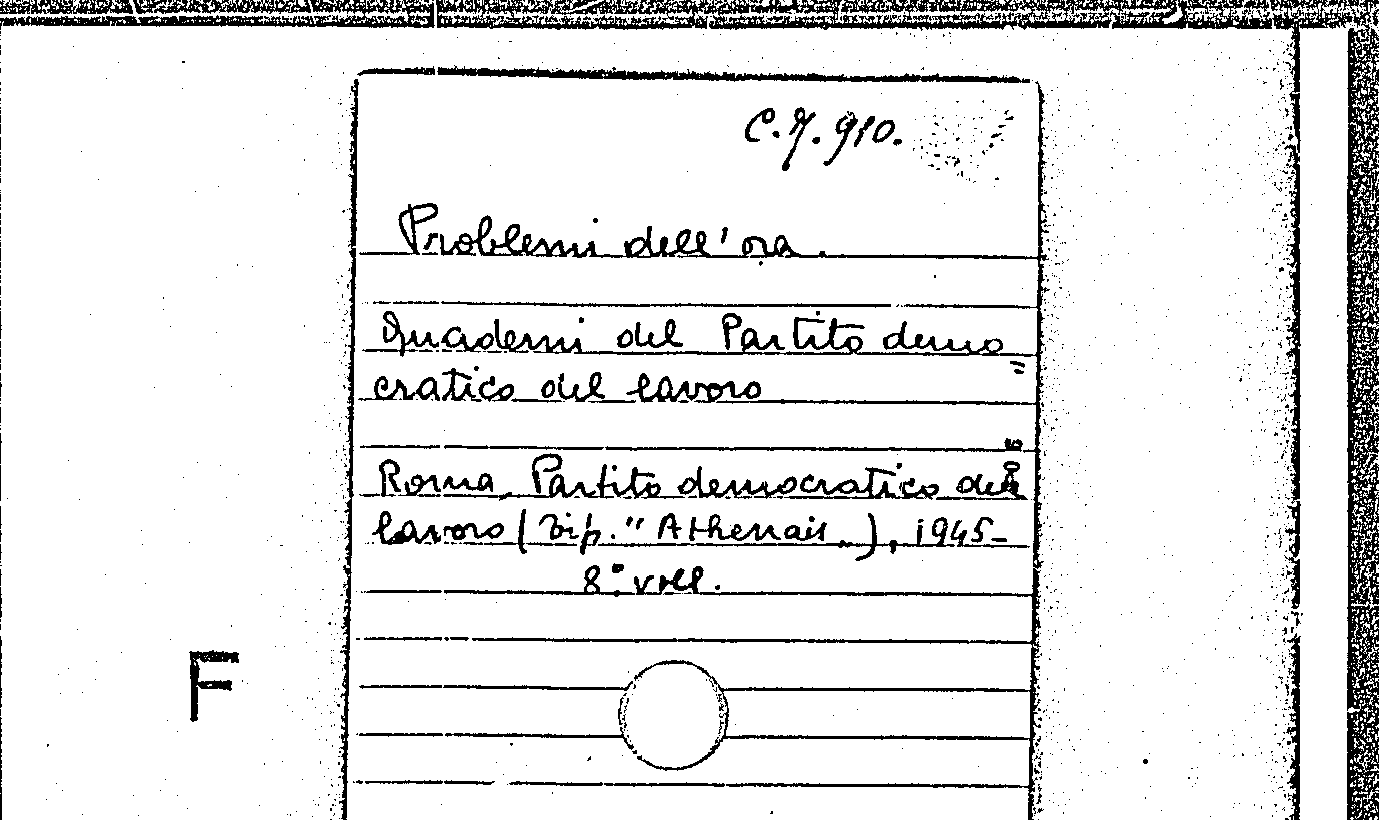 C.7.910.
Problemi dell'ora.
Quaderni del Partito demo=
cratico del lavoro
Roma, Partito democratico del
lavoro (Tip. "Athenais„), 1945-
8° voll.
F